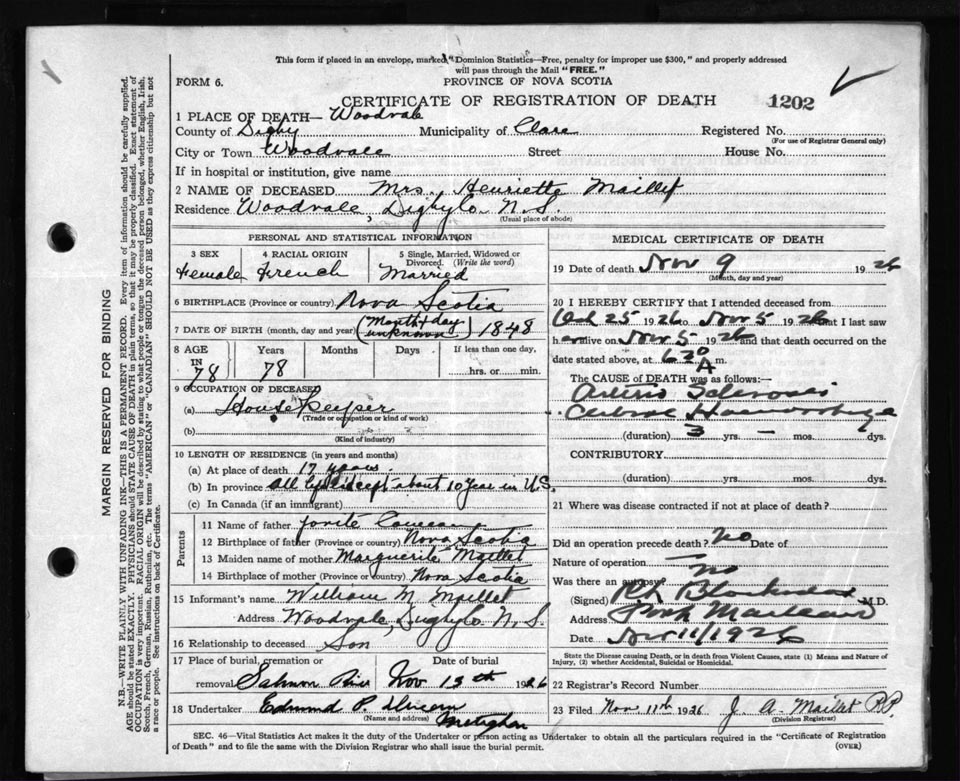 This form if placed in an envelope, marked, "Dominion Statistics—Free, penalty for improper use $300," and properly addressed
will pass through the Mail "FREE."
FORM 6.
PROVINCE OF NOVA SCOTIA
CERTIFICATE OF REGISTRATION OF DEATH 1202
1 PLACE OF DEATH— Woodvale
County of Digby Municipality of Clare Registered No.
(For use of Registrar General only)
City or Town Woodvale Street House No.
If in hospital or institution, give name
2 NAME OF DECEASED Mrs. Henriette Maillet
Residence Woodvale, Digby Co. N.S.
(Usual place of abode)
PERSONAL AND STATISTICAL INFORMATION
3 SEX 4 RACIAL ORIGIN 5 Single, Married, Widowed or Divorced. (Write the word)
Female French Married
6 BIRTHPLACE (Province or country) Nova Scotia
7 DATE OF BIRTH (month, day and year) (Month & day unknown) 1848
8 AGE IN Years Months Days If less than one day,
78 78 hrs. or min.
9 OCCUPATION OF DECEASED
(a) House Keeper
(Trade or occupation or kind of work)
(b)
(Kind of industry)
10 LENGTH OF RESIDENCE (in years and months)
(a) At place of death 17 years
(b) In province all life except about 10 year in U.S.
(c) In Canada (if an immigrant)
Parents
11 Name of father
12 Birthplace of father (Province or country) Nova Scotia
13 Maiden name of mother Marguerite Maillet
14 Birthplace of mother (Province or country) Nova Scotia
15 Informant's name William N. Maillet
Address Woodvale, Digby Co. N.S.
16 Relationship to deceased Son
17 Place of burial, cremation or removal Date of burial
Salmon River Nov 13th 1926
18 Undertaker Edmund P.
(Name and address) Meteghan
MEDICAL CERTIFICATE OF DEATH
19 Date of death Nov 9 1926
(Month, day and year)
20 I HEREBY CERTIFY that I attended deceased from
Oct 25 1926 to Nov 5 1926 that I last saw
her alive on Nov 5 1926 and that death occurred on the
date stated above, at 6 30 A m.
The CAUSE OF DEATH was as follows:
Arterio Sclerosis
Cerebral Haemorrhage
(duration) 3 yrs. — mos. dys.
CONTRIBUTORY
(duration) yrs. mos. dys.
21 Where was disease contracted if not at place of death?
Did an operation precede death? No Date of
Nature of operation —
Was there an autopsy No
(Signed) M.D.
Address
Date Nov 11/1926
State the Disease causing Death, or in death from Violent Causes, state (1) Means and Nature of
Injury, (2) whether Accidental, Suicidal or Homicidal.
22 Registrar's Record Number
23 Filed Nov. 11th 1926 J. A. Maillet P.P.
(Division Registrar)
SEC. 46—Vital Statistics Act makes it the duty of the Undertaker or Person acting as Undertaker to obtain all the particulars required in the "Certificate of Registration
of Death" and to file the same with the Division Registrar who shall issue the burial permit.
(OVER)
MARGIN RESERVED FOR BINDING
N.B.—WRITE PLAINLY WITH UNFADING INK—THIS IS A PERMANENT RECORD. Every item of information should be carefully supplied.
AGE should be stated EXACTLY. PHYSICIANS should STATE CAUSE OF DEATH in plain terms, so that it may be properly classified. Exact statement of
OCCUPATION is very important. RACIAL ORIGIN will be described by stating to what people or tongue the deceased person belonged, whether English, Irish,
Scotch, French, German, Russian, Ruthenian, etc. The terms "AMERICAN" or "CANADIAN" SHOULD NOT BE USED as they express citizenship but not
a race or people. See instructions on back of Certificate.